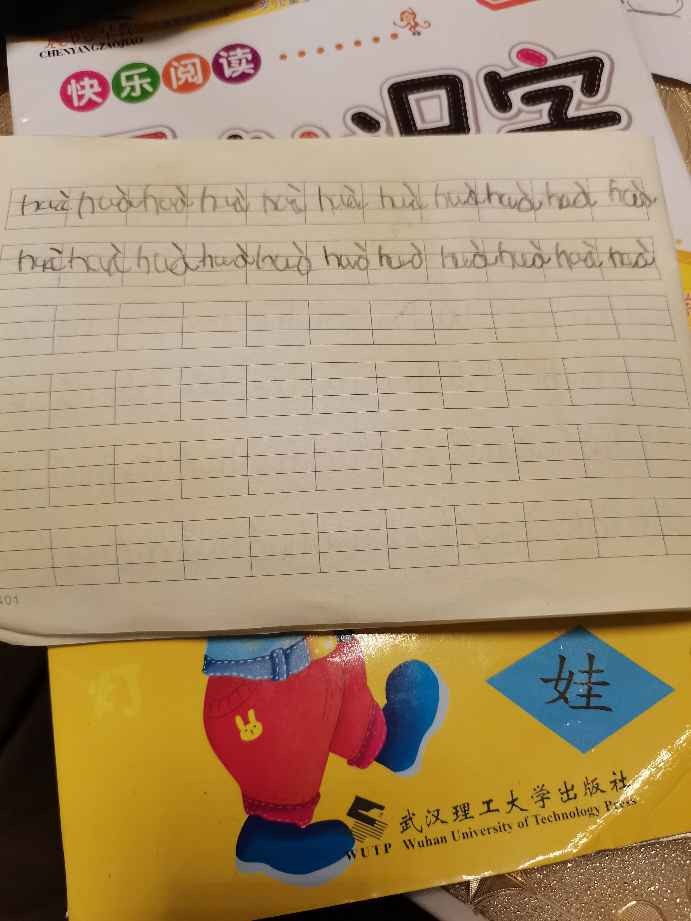 CHENYANGZAOJIAO
快乐阅读
识字
huà huà huà huà huà huà huà huà huà huà huà
huà huà huà huà huà huà huà huà huà huà huà
401
娃
武汉理工大学出版社
WUTP Wuhan University of Technology Press